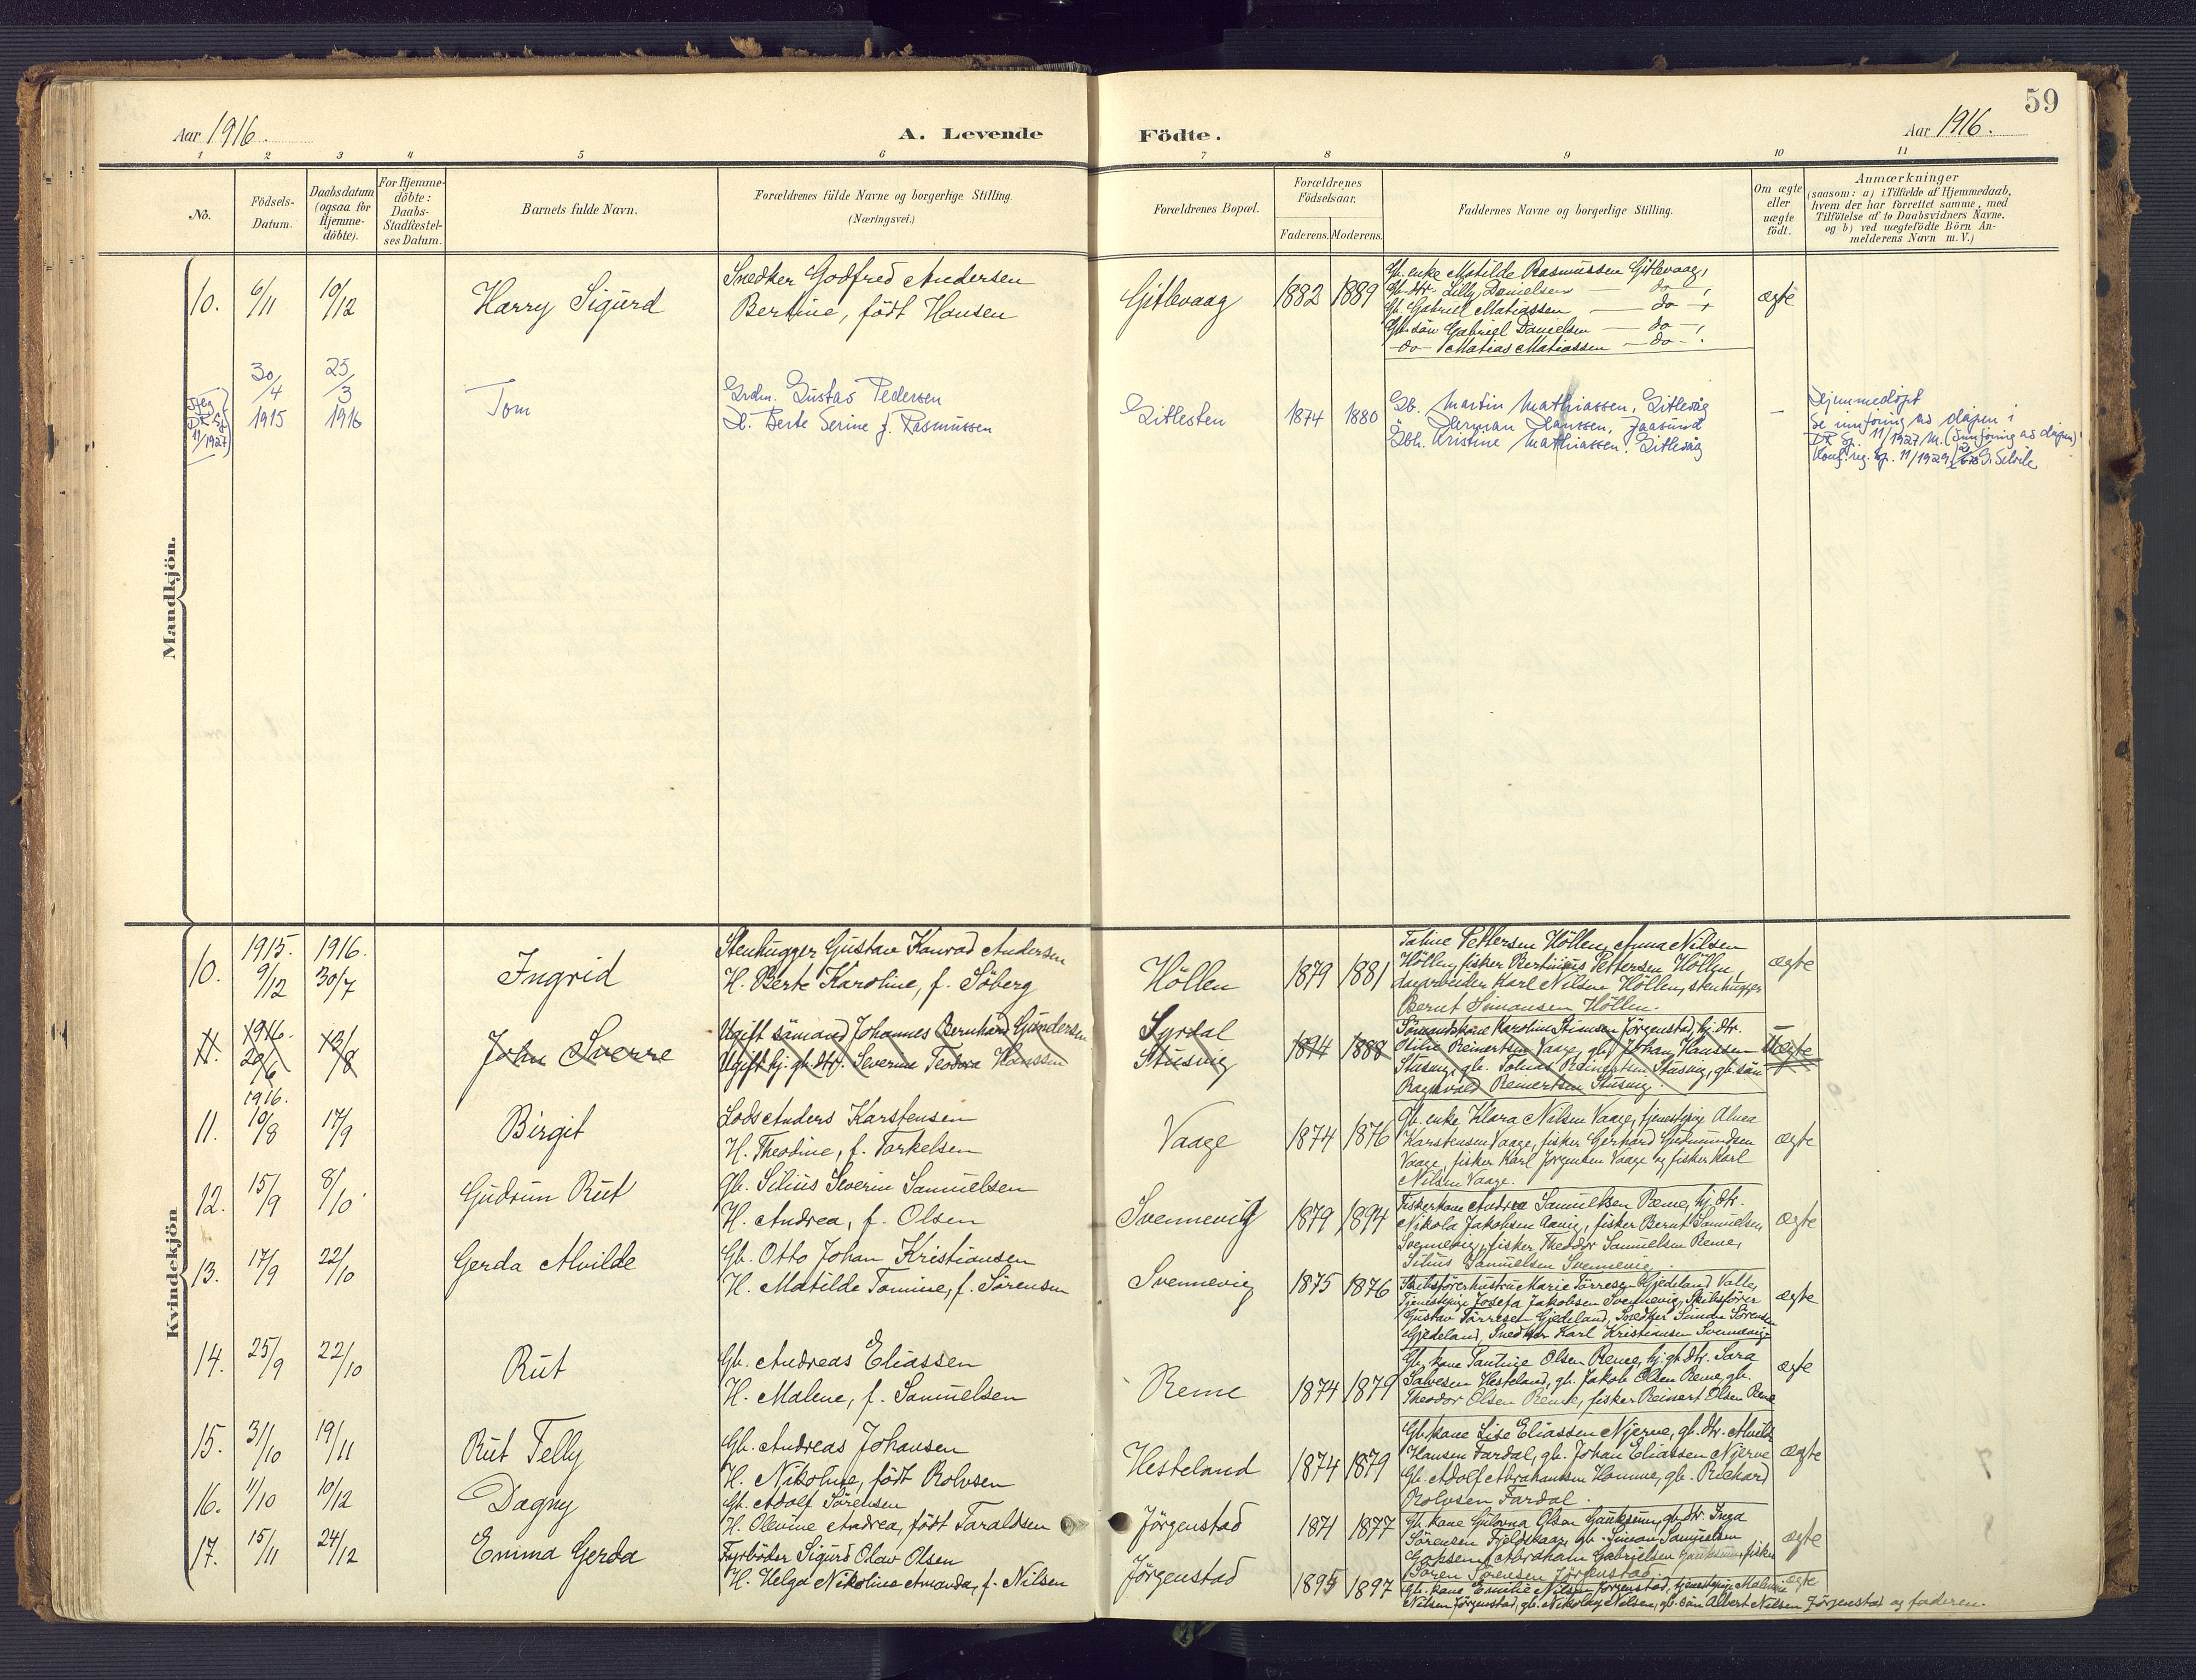 59
Aar 1916.
A. Levende
Födte.
Aar 1916.
1 2 3 4 5 6 7 8 9 10 11
No.
Födsels-
Datum.
Daabsdatum
(ogsaa for
Hjemme-
döbte).
For Hjemme-
döbte:
Daabs-
Stadfæstel-
ses Datum.
Barnets fulde Navn.
Forældrenes fulde Navne og borgerlige Stilling.
(Næringsvei.)
Forældrenes Bopæl.
Forældrenes
Födselsaar.
Faderens. Moderens.
Faddernes Navne og borgerlige Stilling.
Om ægte
eller
uægte
födt.
Anmærkninger
(saasom: a) i Tilfælde af Hjemmedaab,
hvem der har forrettet samme, med
Tilföielse af to Daabsvidners Navne.
og b) ved uægtefödte Börn An-
melderens Navn m. V.)
Mandkjön.
10.
6/11
10/12
Harry Sigurd
Snedker Godfred Andersen
Bertine, födt Hansen
Gitlevaag
1882
1889
Gb. enke Matilde Rasmussen Gitlevaag,
Gb. dtr. Lilly Danielsen — do —,
Gb. Gabriel Matiassen — do —,
Gb. sön Gabriel Danielsen — do —,
do Matias Matiassen — do —.
ægte
11/1927
30/4
1915
25/3
1916
Tom
Grdm. Gustav Pedersen
H. Berte Serine f. Rasmussen
Gitlesten
1874
1880
Gb. Martin Mathiassen, Gitlevåg
Herman Hanssen,
Gbh. Kristine Mathiassen, Gitlevåg
—
Hjemmedöpt
Se innföring av dåpen i
11/1927 M. (Innföring av dåpen)
Konf. reg. 11/1929
Kvindekjön
10.
1915.
9/12
1916.
30/7
Ingrid
Stenhugger Gustav Konrad Andersen
H. Berte Karoline, f. Söberg
Höllen
1879
1881
Taline Pettersen Höllen, Anna Nilsen
Höllen, fisker Bertinius Pettersen Höllen,
dagarbeider Karl Nilsen Höllen, stenhugger
Bernt Simonsen Höllen.
ægte
11.
1916.
20/6
13/8
John Sverre
Ugift sömand Johannes Bernhard Gundersen
Ugift hj. gb. dtr. Severine Teodora Hanssen
Syrdal
Stusvig
1894
1888
Sömandskone Karoline Stiansen Jörgenstad, hj. dtr.
Otilie Reinertsen Vaage, gb. Johan Hanssen
Stusvig, gb. Tobias Reinertsen Stusvig, gb. sön
Ragnvald Reinertsen Stusvig.
Uægte
11.
1916.
10/8
17/9
Birgit
Lods Anders Karstensen
H. Theodine, f. Torkelsen
Vaage
1874
1876
Gb. enke Klara Nilsen Vaage, tjenestepige Alma
Karstensen Vaage, fisker Gerhard Gudmundsen
Vaage, fisker Karl Jörgensen Vaage og fisker Karl
Nilsen Vaage.
ægte
12.
15/9
8/10
Gudrun Rut
Gb. Silius Severin Samuelsen
H. Andrea, f. Olsen
Svennevig
1879
1894
Fiskerkone Andrea Samuelsen Reme, hj. dtr.
Nikola Jakobsen Aavig, fisker Bernt Samuelsen
Svennevig, fisker Theodor Samuelsen Reme,
Silius Samuelsen Svennevig.
ægte
13.
17/9
22/10
Gerda Alvilde
Gb. Otto Johan Kristiansen
H. Matilde Tomine, f. Sörensen
Svennevig
1875
1876
Skibsförerhustru Marie Törresen Gjedeland Valle,
Tjenestepige Josefa Jakobsen Svennevig, Skibsförer
Gustav Törresen Gjedeland, Snedker Simon Sörensen
Gjedeland, Snedker Karl Kristiansen Svennevig
ægte
14.
25/9
22/10
Rut
Gb. Andreas Eliassen
H. Malene, f. Samuelsen
Reme
1874
1879
Gb. kone Olsen Reme, hj. gb. dtr. Sara
Salvesen Hesteland, gb. Jakob Olsen Reme, gb.
Theodor Olsen Reme, fisker Reinert Olsen Reme
ægte
15.
31/10
19/11
Rut Telly
Gb. Andreas Johansen
H. Nikoline, födt Rolvsen
Hesteland
1874
1879
Gb. kone Lise Eliassen Njerve, gb. dtr. Alvilde
Hansen Fardal, gb. Johan Eliassen Njerve
Gb. Adolf Abrahamsen Homme, gb. Richard
Rolvsen Fardal.
ægte
16.
11/10
10/12
Dagny
Gb. Adolf Sörensen
H. Olevine Andrea, födt Taraldsen
Jörgenstad
1871
1877
Gb. kone Gulovna Olsen Gauksum, gb. dtr. Inga
Sörensen Fjeldskaar, gb. Simon Samuelsen
Abraham Gabrielsen Gauksum, fisker
Sören Sörensen Jörgenstad
ægte
17.
15/11
24/12
Emma Gerda
Fyrböder Sigurd Olav Olsen
H. Helga Nikoline Amanda, f. Nilsen
Jörgenstad
1895
1897
Gb. kone Emilie Nilsen Jörgenstad, tjenestepige Malmie
Nilsen Jörgenstad, gb. Nikolay Nilsen, gb. sön Albert Nilsen Jörgenstad og faderen.
ægte